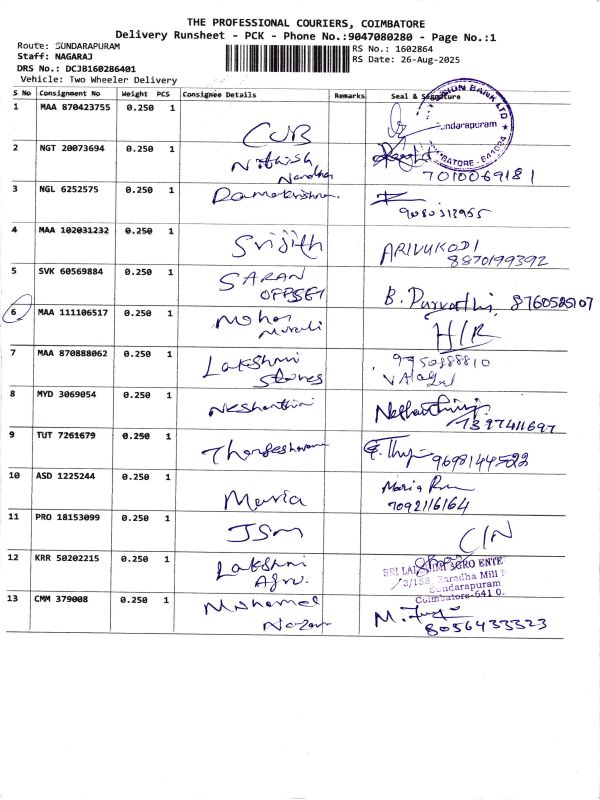 THE PROFESSIONAL COURIERS, COIMBATORE
Delivery Runsheet - PCK - Phone No.:9047080280 - Page No.:1
Route: SUNDARAPURAM
RS No.: 1602864
Staff: NAGARAJ
RS Date: 26-Aug-2025
DRS No.: DCJB160286401
Vehicle: Two Wheeler Delivery
S No Consignment No Weight PCS Consignee Details Remarks Seal & Signature
1 MAA 870423755 0.250 1 CUB
BANK LTD
Sundarapuram
2 NGT 20073694 0.250 1 Nithish
7010069181
3 NGL 6252575 0.250 1
4 MAA 102031232 0.250 1 Srijith ARIVUKODI
8870199392
5 SVK 60569884 0.250 1 SARAN
OFFSET
B. Parvathi,
6 MAA 111106517 0.250 1 Mohan
Murali
7 MAA 870888062 0.250 1 Lakshmi
Stores
8 MYD 3069054 0.250 1
9 TUT 7261679 0.250 1
9698144522
10 ASD 1225244 0.250 1 Maria Maria
7092116164
11 PRO 18153099 0.250 1 JSM
12 KRR 50202215 0.250 1 Lakshmi
Agro.
AGRO ENTE
Sundarapuram
Coimbatore-641 0
13 CMM 379008 0.250 1 Mohamed
M.
8056433323